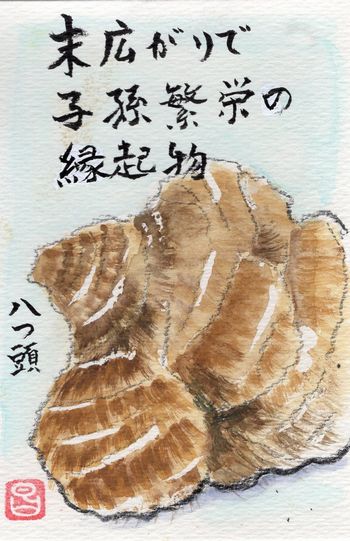 末広がりで
子孫繁栄の
縁起物
八つ頭